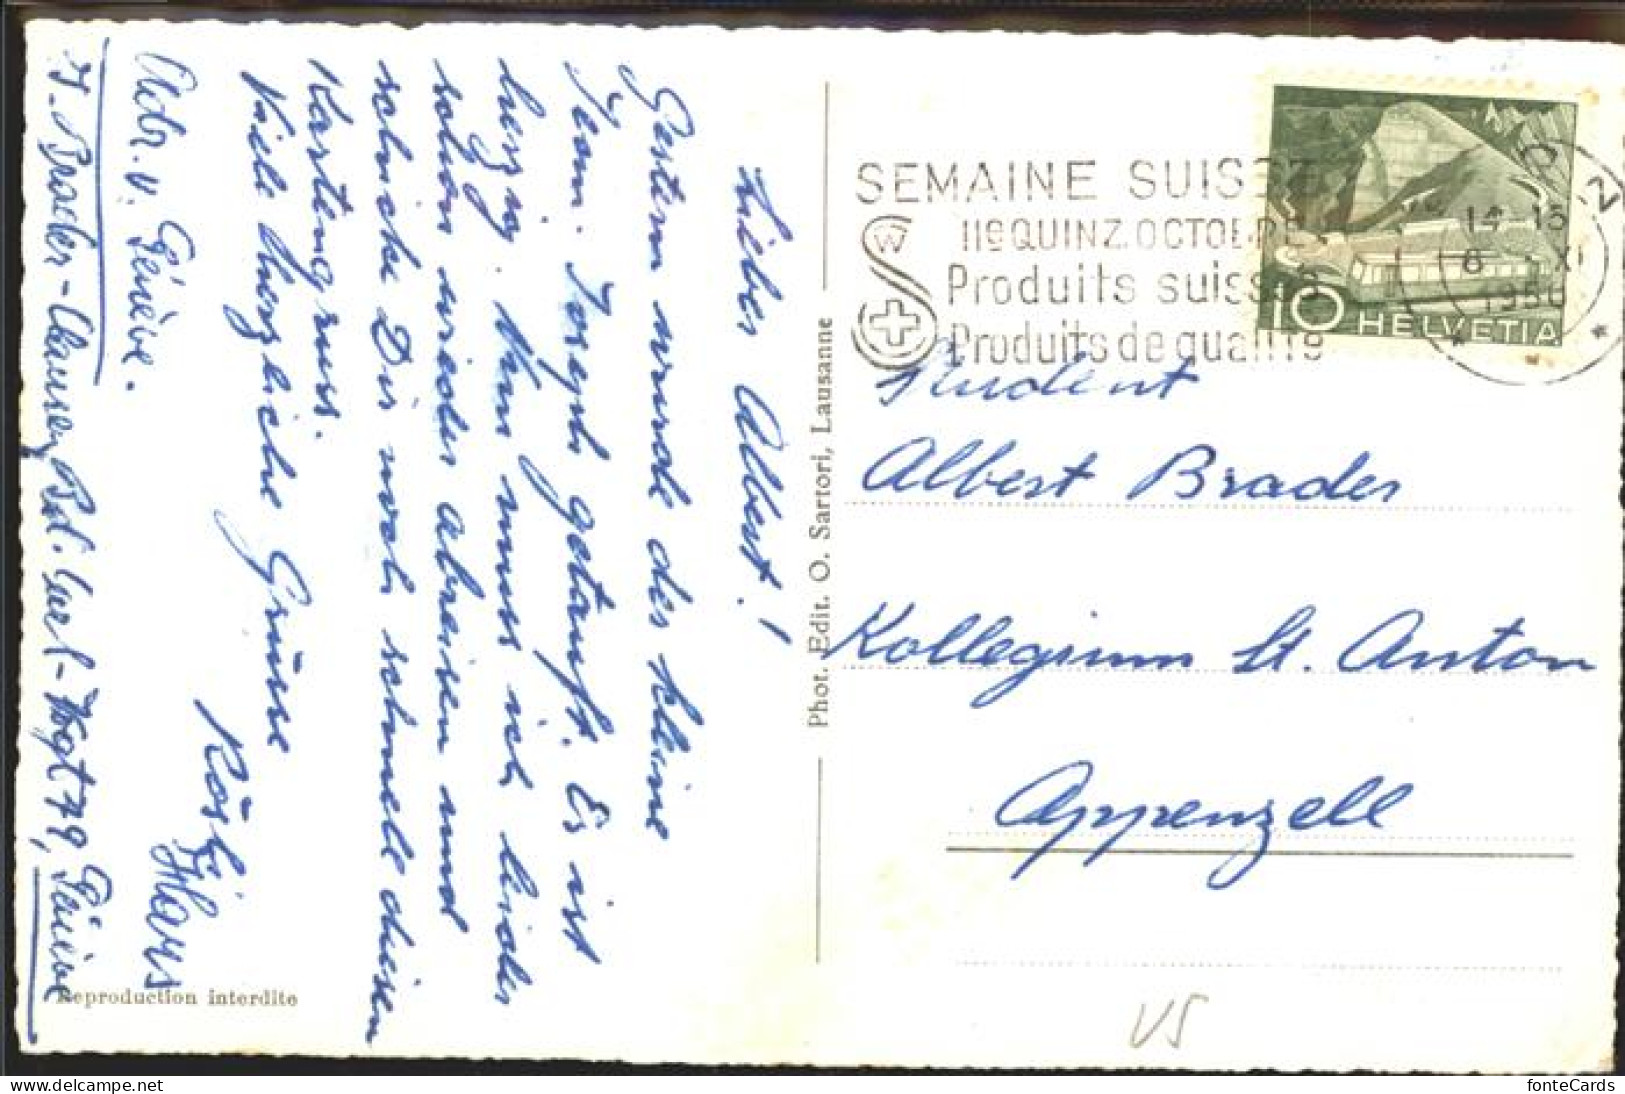 Lieber Albert!
Gestern wurde der kleine
Jean-Joseph getauft. Es ist
herzig. Nun muss ich leider
schon wieder abreisen und
schicke Dir noch schnell diesen
Kartengruss.
Viele herzliche Grüsse
Rösli
Hans
Adr. v. Genève.
J. Brader-Clausen, Bd. Carl-Vogt 79, Genève
Reproduction interdite
Phot. Edit. O. Sartori, Lausanne
SEMAINE SUISSE
QUINZ. OCTOBRE
Produits suisses
Produits de qualité
W
14-15
8 XI
10 HELVETIA
Student
Albert Brader
Kollegium St. Anton
Appenzell
VS
fonteCards